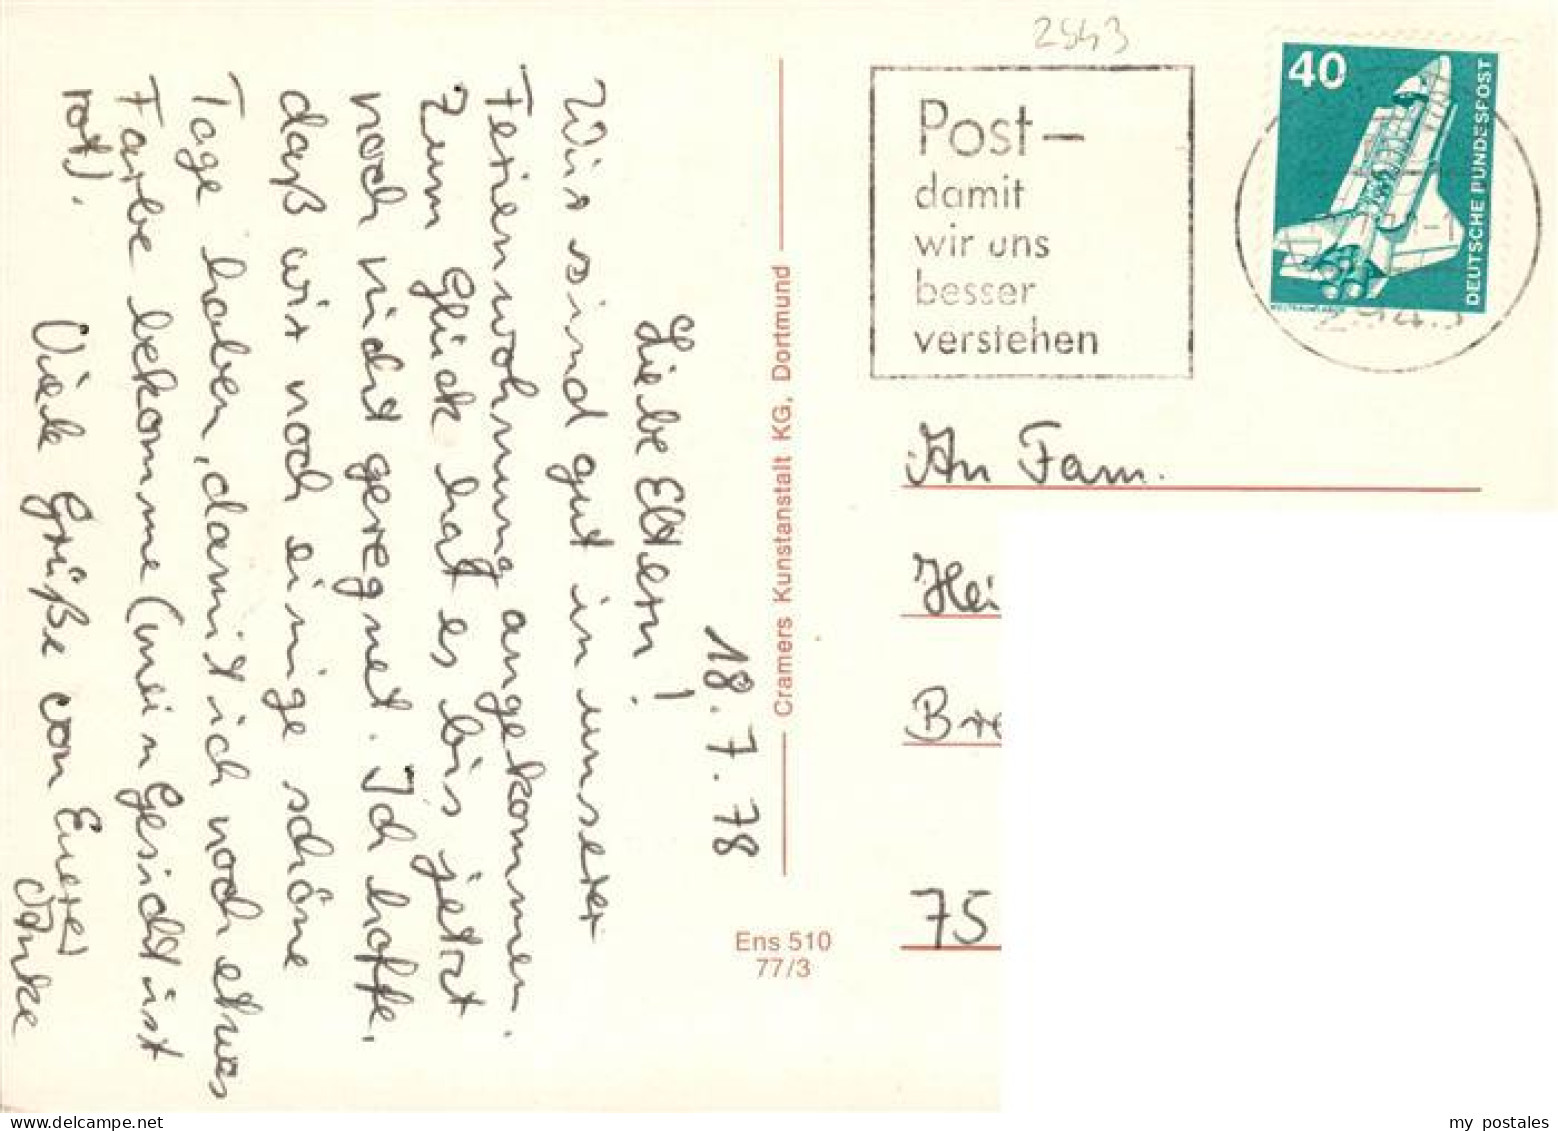 18.7.78
Liebe Eltern!
Wir sind gut in unserer
Ferienwohnung angekommen.
Zum Glück hat es bis jetzt
noch nicht geregnet. Ich hoffe,
daß wir noch einige schöne
Tage haben, damit ich noch etwas
Farbe bekomme (mein Gesicht ist
rot).
Viele Grüße von Eurer
Anke
Cramers Kunstanstalt KG, Dortmund
Ens 510
77/3
2543
Post –
damit
wir uns
besser
verstehen
40
DEUTSCHE BUNDESPOST
An Fam.
Hei
Bre
75
my postales